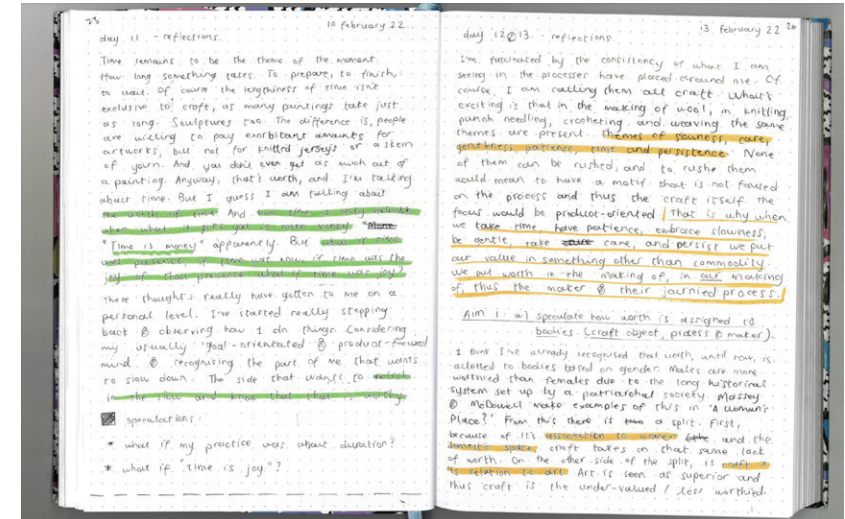 25
10 february 22
day 11 - reflections.
Time remains to be the theme of the moment.
How long something takes. To prepare, to finish,
to wait. Of course the lengthiness of time isn't
exclusive to craft, as many paintings take just
as long. Sculptures too. The difference is, people
are willing to pay exorbitant amounts for
artworks, but not for knitted jerseys or a skein
of yarn. And you don't even get as much out of
a painting. Anyway, that's worth, and I'm talking
about time. But I guess I am talking about
the worth of time. And how time is only valuable
when what it gets you is more money.
"Time is money" apparently. But what if time
was presence, if time was now, if time was the
joy of that presence what if time was joy?
These thoughts really have gotten to me on a
personal level. I've started really stepping
back & observing how I do things. Considering
my usually 'goal-orientated' & product-focused
mind. & recognising the part of me that wants
to slow down. The side that wants to relish
in the slow and know that that is worthy.
speculations:
* what if my practice was about duration?
* what if "time is joy"?
13 february 22
26
day 12&13. reflections.
I'm fascinated by the consistency of what I am
seeing in the processes have placed around me. Of
course, I am calling them all craft. What's
exciting is that in the making of wool, in knitting,
punch needling, crocheting and weaving, the same
themes are present. Themes of slowness, care,
gentleness, patience, time and persistence. None
of them can be rushed, and to rush them
would mean to have a motif that is not focused
on the process and thus the craft itself. The
focus would be product-oriented. That is why when
we take time have patience, embrace slowness,
be gentle, take care, and persist we put
our value in something other than commodity.
We put worth in the making of, in our making
of, thus the maker & their journied process.
Aim 1: a) speculate how worth is assigned to
bodies. (craft object, process & maker).
I think I've already recognised that worth, until now, is
allotted to bodies based on gender. Males are more
worthied than females due to the long historical
system set up by a patriarchal society. Massey
& McDowell make examples of this in 'A Woman's
Place?' From this there is a split. First,
because of it's association to women and the
domestic space, craft takes on that same lack
of worth. On the other side of the split, is craft in
its relation to art. Art is seen as superior and
thus craft is the under-valued / less worthied.